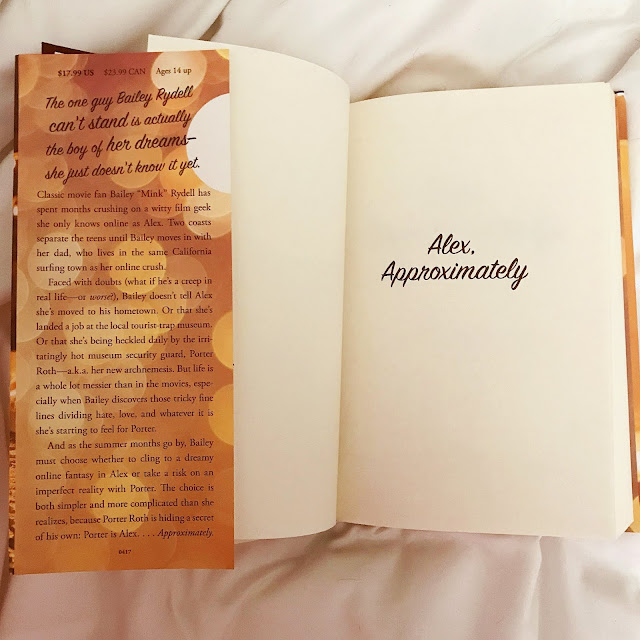 $17.99 US $23.99 CAN Ages 14 up
The one guy Bailey Rydell
can't stand is actually
the boy of her dreams—
she just doesn't know it yet.
Classic movie fan Bailey “Mink” Rydell has
spent months crushing on a witty film geek
she only knows online as Alex. Two coasts
separate the teens until Bailey moves in with
her dad, who lives in the same California
surfing town as her online crush.
Faced with doubts (what if he's a creep in
real life—or worse?), Bailey doesn't tell Alex
she's moved to his hometown. Or that she's
landed a job at the local tourist-trap museum.
Or that she's being heckled daily by the irri-
tatingly hot museum security guard, Porter
Roth—a.k.a. her new archnemesis. But life is
a whole lot messier than in the movies, espe-
cially when Bailey discovers those tricky fine
lines dividing hate, love, and whatever it is
she's starting to feel for Porter.
And as the summer months go by, Bailey
must choose whether to cling to a dreamy
online fantasy in Alex or take a risk on an
imperfect reality with Porter. The choice is
both simpler and more complicated than she
realizes, because Porter Roth is hiding a secret
of his own: Porter is Alex. . . . Approximately.
0417
Alex,
Approximately